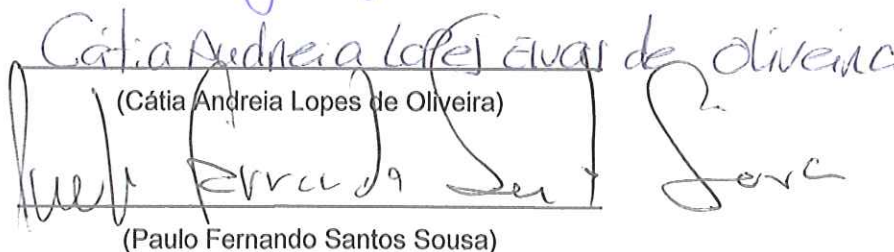 Cátia Andreia Lopes de Oliveira
(Cátia Andreia Lopes de Oliveira)
Paulo Fernando Sousa
(Paulo Fernando Santos Sousa)